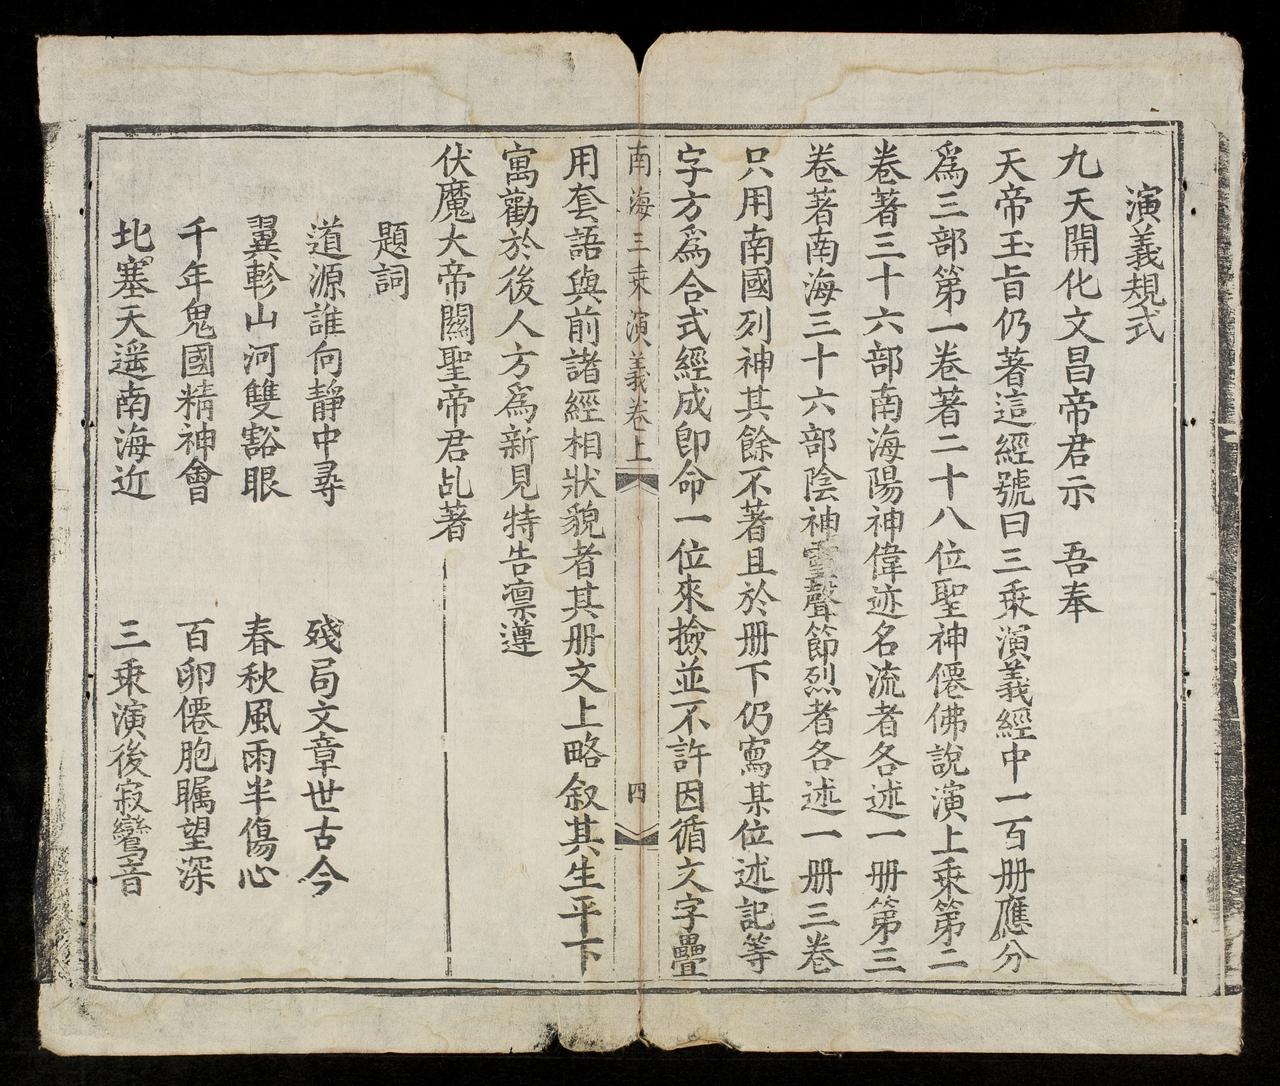 演義規式
九天開化文昌帝君示　吾奉
天帝玉旨仍著這經號曰三乘演義經中一百册應分
爲三部第一卷著二十八位聖神僊佛說演上乘第二
卷著三十六部南海陽神偉迹名流者各述一册第三
卷著南海三十六部陰神䨩聲節烈者各述一册三卷
只用南國列神其餘不著且於册下仍寫某位述記等
字方爲合式經成卽命一位來撿並不許因循文字疊
南海三乘演義卷上
四
用套語與前諸經相狀貌者其册文上略叙其生平下
寓勸於後人方爲新見特告凛遵
伏魔大帝關聖帝君乩著
題詞
道源誰向靜中尋　殘局文章世古今
翼軫山河雙豁眼　春秋風雨半傷心
千年鬼國精神會　百卵僊胞矚望深
北塞天遥南海近　三乘演後寂鸞音